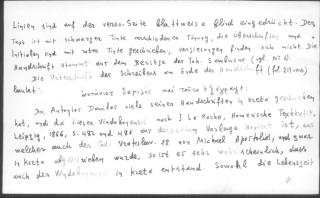 Linien sind auf der verso-Seite blattweise blind eingedrückt. Der
Text ist mit schwarzer Tinte verschiedener Tönung, die Überschriften und
Initialen sind mit roter Tinte geschrieben, Verzierungen finden sich nicht. Die
Handschrift stammt aus dem Besitze des Joh. Sambucus (vgl. N: 1).
Die Unterschrift des Schreibers am Ende der Handschrift (fol 219 verso)
lautet:
Da Antonios Damilas viele seiner Handschriften in Kreta geschrieben
hat, und da unser Vindobonensis nach J. La Roche, Homerische Textkritik,
Leipzig, 1866, S. 482 und 486 aus derselben Vorlage kopiert ist, aus
welcher auch der Cod. Vratislav. 28 von Michael Apostolios, und zwar
in Kreta abgeschrieben wurde, so ist es sehr wahrscheinlich, dass
auch der Vindobonensis in Kreta entstand. Sowohl die Lebenszeit